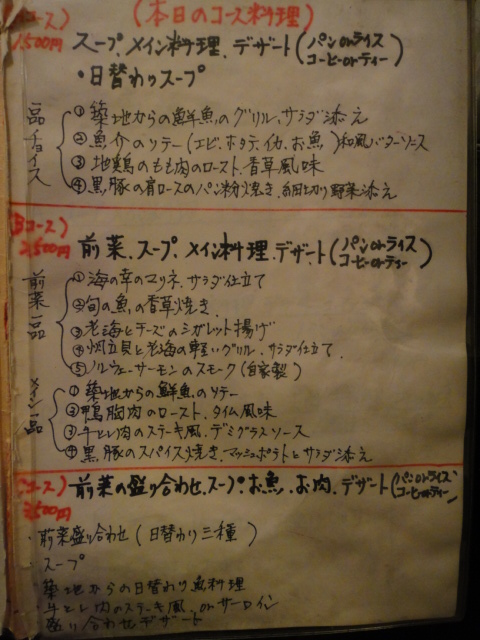 (本日のコース料理)
コース)
1,500円
スープ、メイン料理、デザート(パンorライス コーヒーorティー)
・日替わりスープ
一品チョイス
① 築地からの鮮魚のグリル、サラダ添え
② 魚介のソテー(エビ、ホタテ、イカ、お魚)和風バターソース
③ 地鶏のもも肉のロースト、香草風味
④ 黒豚の肩ロースのパン粉焼き、細切り野菜添え
Bコース)
2,500円
前菜、スープ、メイン料理、デザート(パンorライス コーヒーorティー)
前菜一品
①海の幸のマリネ、サラダ仕立て
②旬の魚の香草焼き
③老海とチーズのシガレット揚げ
④帆立貝と老海の軽いグリル、サラダ仕立て
⑤ノルウェーサーモンのスモーク(自家製)
メイン一品
① 築地からの鮮魚のソテー
②鴨胸肉のロースト、タイム風味
③牛ヒレ肉のステーキ風、デミグラスソース
④黒豚のスパイス焼き、マッシュポテトとサラダ添え
コース)
3,500円
前菜の盛り合わせ、スープ、お魚、お肉、デザート(パンorライス コーヒーorティー)
・前菜盛り合わせ(日替わり三種)
・スープ
・築地からの日替わり魚料理
・牛ヒレ肉のステーキ風、orサーロイン
盛り合わせデザート